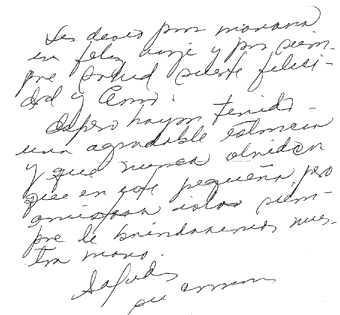 Les deseo por manana
un feliz viaje y por siem-
pre salud suerte felici-
dad y Amor.
Espero hayan tenido
una agradable estancia
y que nunca olviden
que en esta pequeña, pero
amistosa islas siem-
pre le brindaremos nues-
tra mano.
Saludos
su